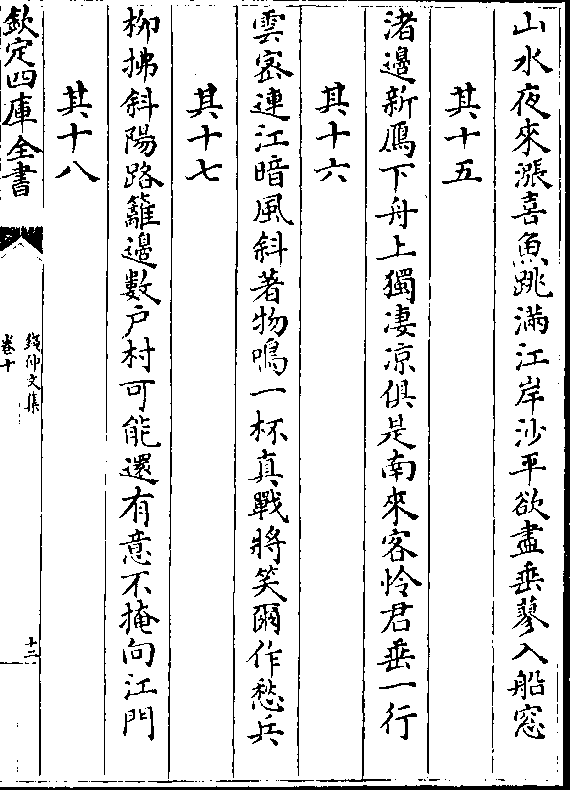 山水夜來漲喜魚跳滿江岸沙平欲盡垂蓼入船窓
其十五
渚邊新鴈下舟上獨凄凉俱是南來客怜君垂一行
其十六
雲密連江暗風斜著物鳴一杯真戰將笑爾作愁兵
其十七
柳拂斜陽路籬邊數戶村可能還有意不掩向江門
其十八
欽定四庫全書
錢仲文集
卷十
十二